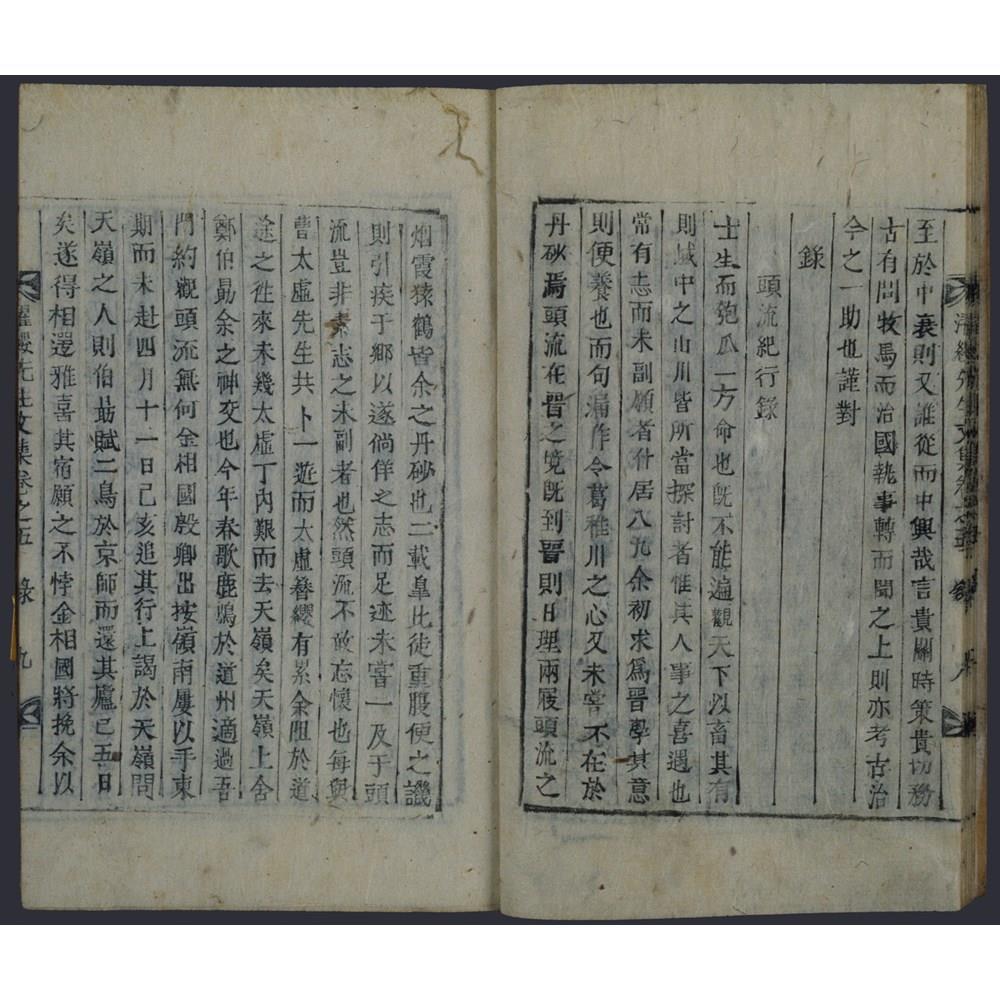 濯纓先生文集卷之五
至於中衰則又誰從而中興哉言貴關時策貴切務
古有問牧馬而治國執事轉而聞之上則亦考古治
今之一助也謹對
錄
頭流紀行錄
士生而匏瓜一方命也旣不能遍觀天下以畜其有
則域中之山川皆所當探討者惟其人事之喜違也
常有志而未副願者什居八九余初求爲晋學其意
則便養也而句漏作令葛稚川之心又未嘗不在於
丹砂焉頭流在晋之境旣到晋則日理兩屐頭流之
烟霞猿鶴皆余之丹砂也二載皐比徒重腹便之譏
則引疾于鄕以遂倘佯之志而足迹未嘗一及于頭
流豈非素志之未副者也然頭流不敢忘懷也每與
曹太虛先生共卜一遊而太虛簪纓有累余阻於道
途之徃來未幾太虛丁內艱而去天嶺矣天嶺上舍
鄭伯勗余之神交也今年春歌鹿鳴於道州適過吾
門約觀頭流無何金相國殷卿出按嶺南屢以手柬
期而未赴四月十一日己亥追其行上謁於天嶺問
天嶺之人則伯勗賦二鳥於京師而還其廬已五日
矣遂得相邂雅喜其宿願之不悖金相國將挽余以
濯纓先生文集卷之五 錄 九